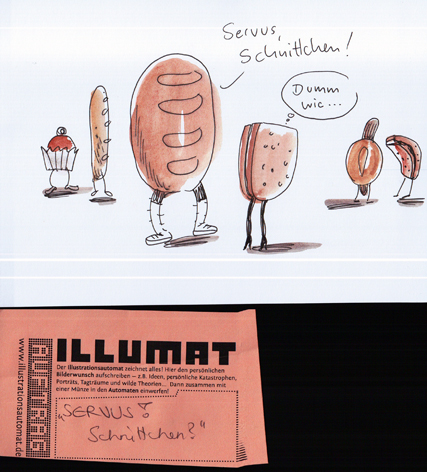 Servus,
Schnittchen!
Dumm
wie...
ILLUMAT
Der Illustrationsautomat zeichnet alles! Hier den persönlichen
Bilderwunsch aufschreiben – z.B. Ideen, persönliche Katastrophen,
Porträts, Tagträume und wilde Theorien... Dann zusammen mit
einer Münze in den Automaten einwerfen!
AUFTRAG
www.illustrationsautomat.de
„SERVUS!
Schnittchen?"